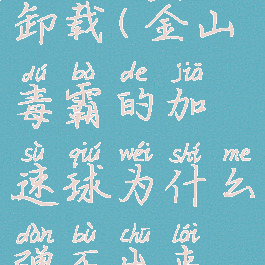 卸载(金山
dú bà de jiā
毒霸的加
sù qiú wéi shí me
速球为什么
dàn bù chū lái
弹不出来